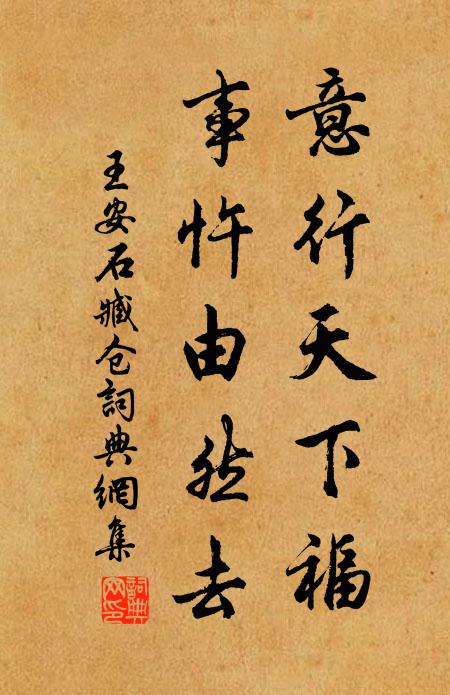 意行天下福
事忤由然去
王安石臧仓詞典網集
詞典网印